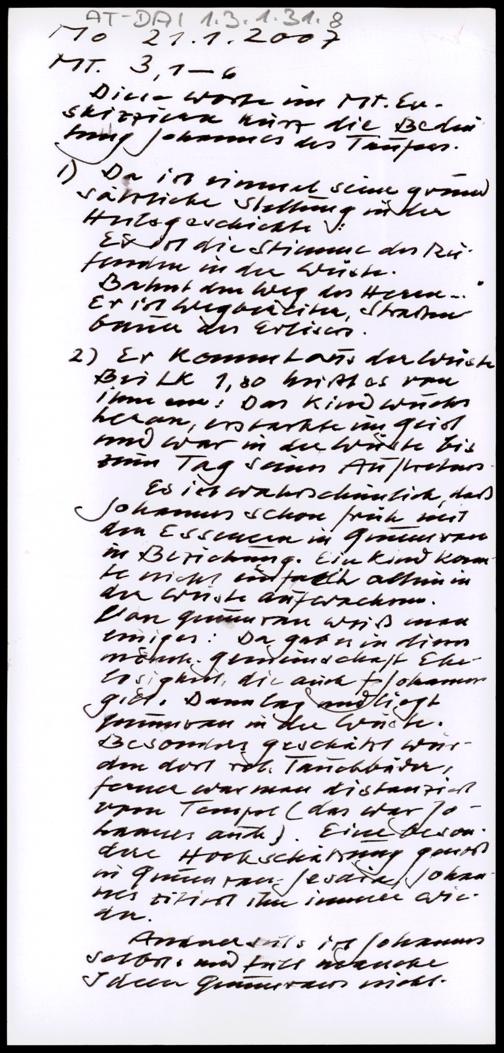 AT-DAI 1.3.1.31.8
Mo 21.1.2007
Mt. 3,1–6
Diese Worte im Mt. Ev.
skizzieren kurz die Bedeu
tung Johannes des Täufers.
1) Da ist einmal seine grund
sätzliche Stellung in der
Heilsgeschichte:
Er ist die Stimme des Ru-
fenden in der Wüste.
Bahnt den Weg des Herrn..."
Er ist Wegbereiter, Straßen
bauer des Erlösers.
2) Er kommt aus der Wüste
Bei LK 1,80 heißt es von
ihm: Das Kind wuchs
heran, erstarkte im Geist
und war in der Wüste bis
zum Tag seines Auftretens.
Es ist wahrscheinlich, daß
Johannes schon früh mit
den Essenern in Qumran
in Beziehung. Ein Kind konn-
te nicht einfach allein in
der Wüste aufwachsen.
Von Qumran weiß man
einiges: Da gab es in dieser
mönch. Gemeinschaft Ehe-
losigkeit, die auch f. Johannes
gilt. Dann lag und liegt
Qumran in der Wüste.
Besonders geschätzt wur-
den dort rel. Tauchbäder,
ferner war man distanziert
vom Tempel (das war Jo-
hannes auch). Eine beson-
dere Hochschätzung genoß
in Qumran Jesaia, Johan-
nes zitiert ihn immer wie-
der.
Andererseits ist Johannes
selbst. und teilt manche
Ideen Qumrans nicht.